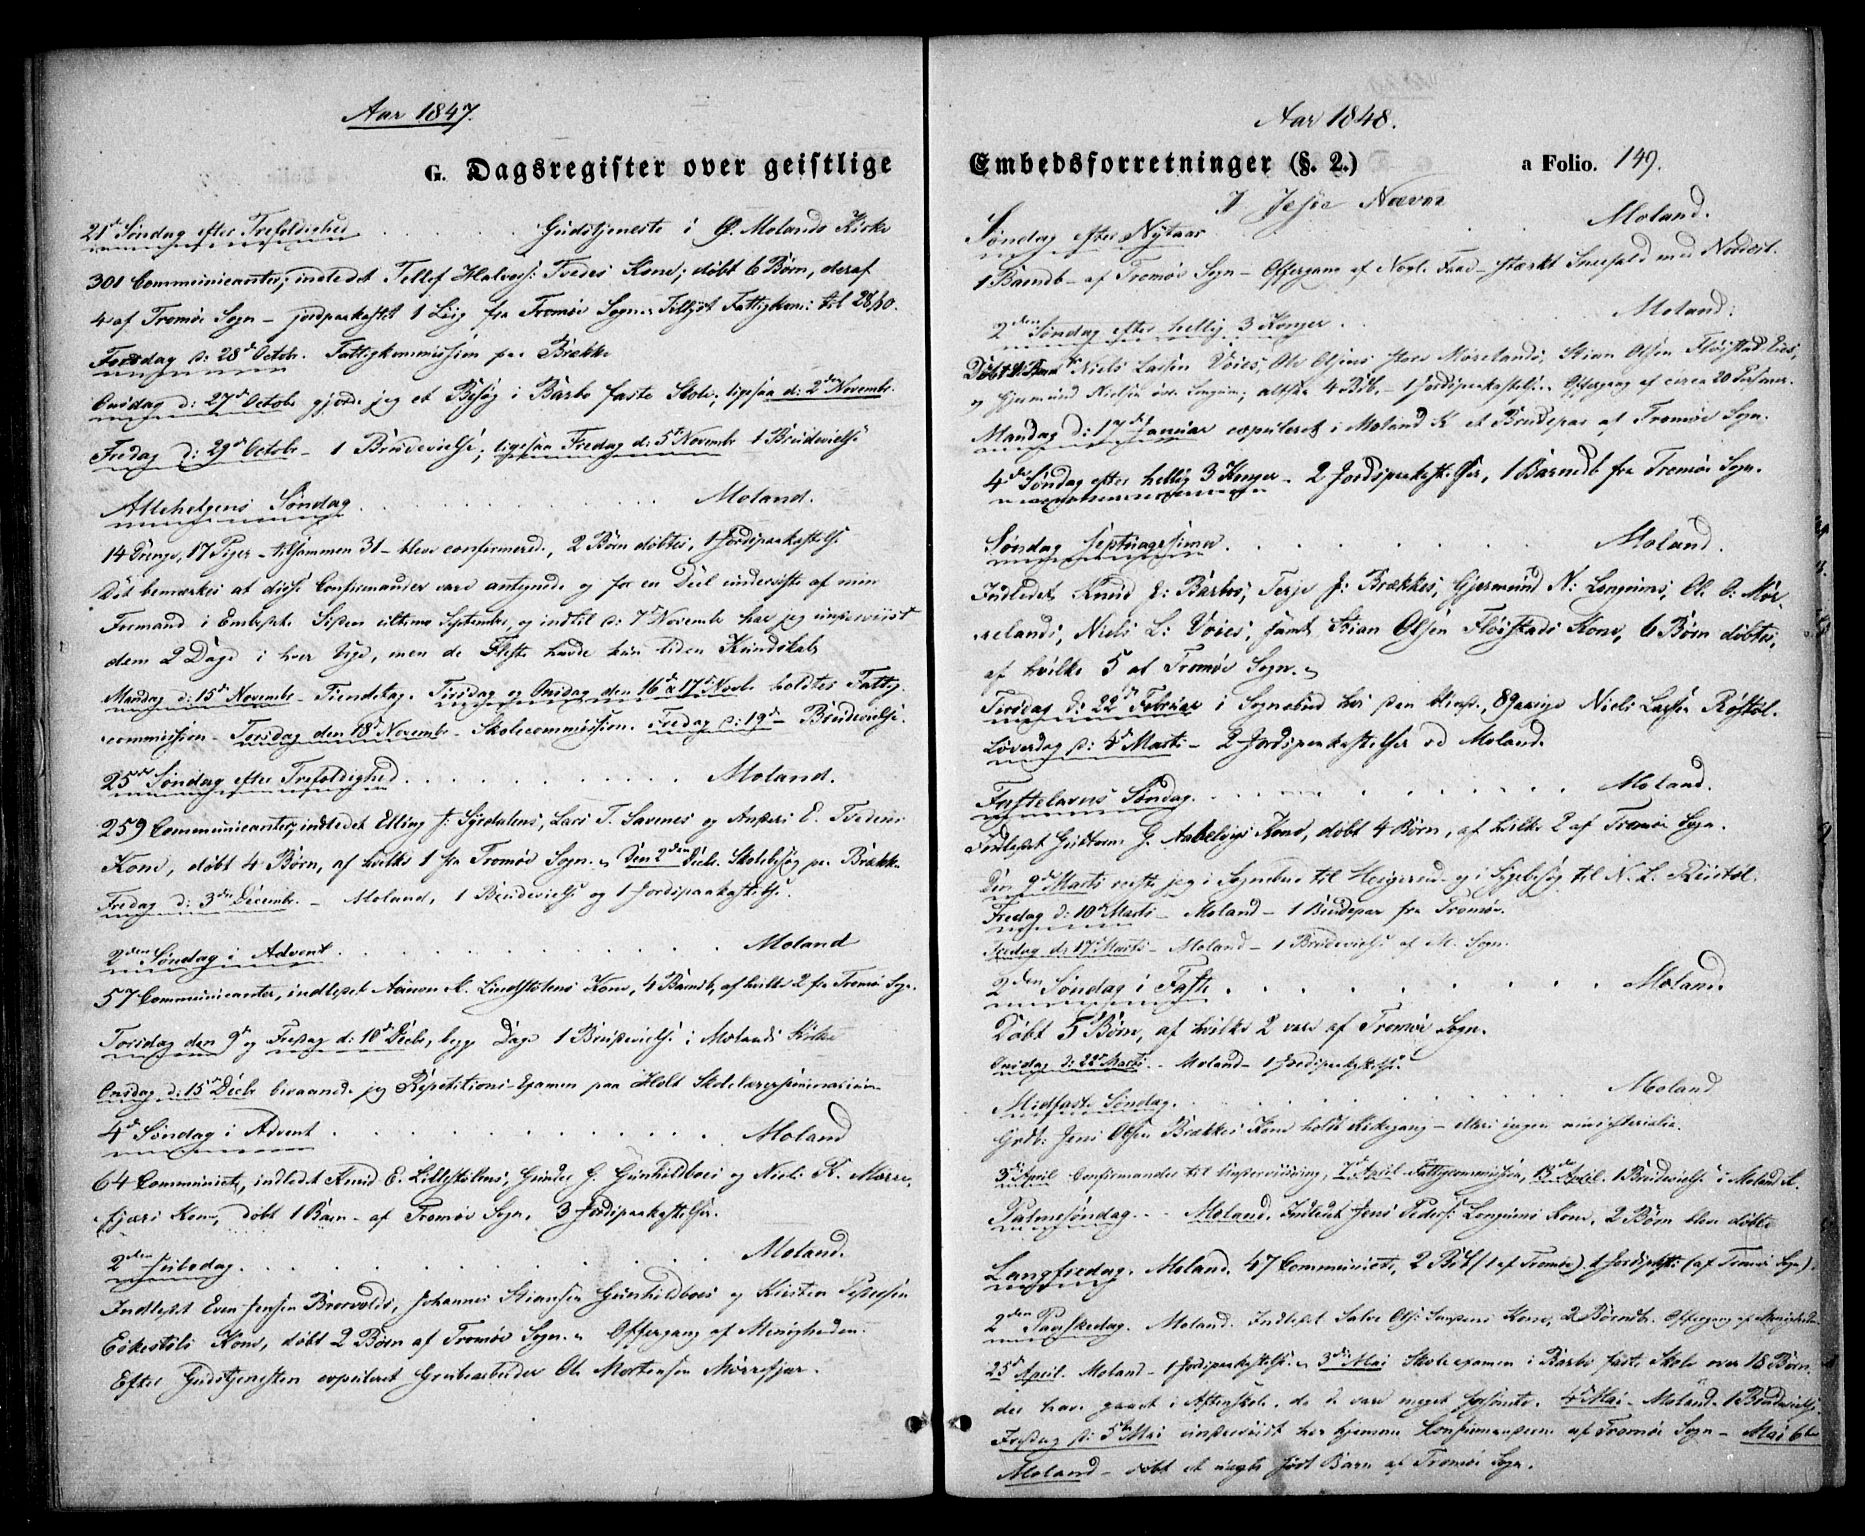 Aar 1847.
G. Dagsregister over geistlige
21de Søndag efter Trefoldighed . . . . . Gudstjeneste i Ø. Molands Kirke
301 Communicanter, indledet Tellef Halvors: Tvedes Kone; døbt 6 Børn, deraf
4 af Tromøe Sogn – jordpaakastet 1 Liig fra Tromøe Sogn.
Torsdag d: 28de Octobr. Fattigkommission paa Brække
Onsdag d: 27de Octobr gjorde jeg et Besøg i Barbo faste Skole; ligesaa d: 2den Novembr.
Fredag d: 29de Octobr – 1 Brudevielse; ligesaa Fredag d: 5te Novembr 1 Brudevielse
Allehelgens Søndag . . . . . Moland.
14 Drenge, 17 Piger – tilsammen 31 – blev confirmerede, 2 Børn døbte, 1 Jordspaakastelse
Det bemærkes at disse Confirmander vare antegnede og for en Deel underviste af min
Formand i Embedet. Siden ultimo September, og indtil d: 7de November har jeg underviist
dem 2 Dage i hver Uge, men de Fleste havde kun liden Kundskab
Mandag d: 15de Novembr – Tiendetag. Tirsdag og Onsdag den 16de & 17de Novbr. holdtes Fattig-
commission – Torsdag den 18de Novembr – Skolecommission. Fredag d: 19de – Brudevielse.
25de Søndag efter Trefoldighed . . . . . Moland.
259 Communicanter, indledet Elling J: Syrdalens, Lars T. Savenes og Anders E. Tvedens
Kone, døbt 4 Børn, af hvilke 1 fra Tromøe Sogn. Den 2den Decbr. Skolebesøg paa Brække
Fredag d: 3die Decembr. – Moland, 1 Brudevielse og 1 Jordspaakastelse.
2den Søndag i Advent . . . . . Moland
57 Communicanter, indledet Aanon A. Lindstølens Kone, 4 Barnedb, af hvilke 2 fra Tromøe Sogn.
Torsdag den 9de og Fredag d: 10de Decbr, begge Dage 1 Brudevielse i Molands Kirke
Onsdag d: 15de Decbr bivaanede jeg Repetitions-Examen paa Holt Skolelærerseminarium
4de Søndag i Advent . . . . . Moland
64 Communicantr, indledt Knud E. Lillestølens, Gunder G. Gunhildboes og Niels K. Mørre-
fjærs Kone, døbt 1 Barn – af Tromøe Sogn, 3 Jordspaakastelser.
2den Juledag . . . . . Moland.
Indledet Even Jensen Brovolds, Johannes Stiansen Gunhildboes og Kirsten Pedersen
Eikestøls Kone, døbt 2 Børn af Tromøe Sogn. Offergang af Menigheden.
Efter Gudstjenesten copuleret Grubearbeider Ole Mortensen Mørrefjær.
Aar 1848.
Embedsforretninger (§. 2.) a Folio. 149.
I Jesu Navn
Søndag efter Nytaar . . Moland.
1 Barndb – af Tromøe Sogn – Offergang af Nogle Faae – stærkt Sneefald med Nordost.
2den Søndag efter hellig 3 Konger . . . Moland.
Niels Larsen Voies, Ole Olsens Mørelands, Stian Olsen Fløistad
og Gjermund Nielsen Longum; altsaa 4 Bdb. – 1 Jordspaakastelse. Offergang af circa 20 Personer.
Mandag d: 17de Januar copuleret i Moland K. et Brudepar af Tromøe Sogn.
4de Søndag efter hellig 3 Konger – 2 Jordspaakastelser, 1 Barndb fra Tromøe Sogn.
Søndag Septuagesima . . . . . Moland.
Indledet Knud E: Barbos; Terje J: Brækkes, Gjermund N: Longums, Ol. O: Mør-
relands, Niels L: Voies, samt Stian Olsen Fløistads Kone, 6 Børn døbte,
af hvilke 5 af Tromøe Sogn.
Tirsdag d: 22de Februar i Sognebud hos den 89aarige Niels Larsen Røstøl.
Løverdag d: 4de Marts – 2 Jordspaakastelser ved Moland.
Fastelavns Søndag . . . . . Moland.
Indledet Guttorm G. Aabelvigs Kone, døbt 4 Børn, af hvilke 2 af Tromøe Sogn.
Den 9de Marts reiste jeg i Sognebud til og i Sygebesøg til N. L.
Fredag d: 10de Marts – Moland – 1 Brudepar fra Tromøe.
Fredag d: 17de Marts – Moland – 1 Brudevielse af M. Sogn.
2den Søndag i Faste . . . . . Moland.
Døbt 5 Børn, af hvilke 2 vare af Tromøe Sogn.
Onsdag d: 22de Marts – Moland – 1 Jordspaakastelse.
Midfaste Søndag . . . . . Moland
Jens Olsen Brækkes Kone holdt Kirkegang – ellers ingen ministerialia.
3die April Confirmander til Underviisning, 7de April Fattigcommission, 13de April. 1 Brudevielse i Moland K.
Palmesøndag. . . Moland. Indledt Jens Peders: Longums Kone, 2 Børn bleve døbte
Langfredag. Moland. 47 Communicant., 2 Bdb (1 af Tromøe). 1 Jordspkst: (af Tromøe Sogn).
2den Paaskedag. Moland. Indledet Salve Ols: Kone, 2 Barndb. Offergang af Menigheden
25de April. Moland – 1 Jordspaakastelse. 3die Mai Skoleexamen i Barbo faste Skole over 18 Børn
der have gaaet i Aftenskole, da de vare meget forsømte. 4de Mai – Moland – 1 Brudevielse.
Fredag d: 5te Mai underviist her hjemme Confirmanderne af Tromøe Sogn – Mai 6te
Moland – døbt et uægte født Barn af Tromøe Sogn.